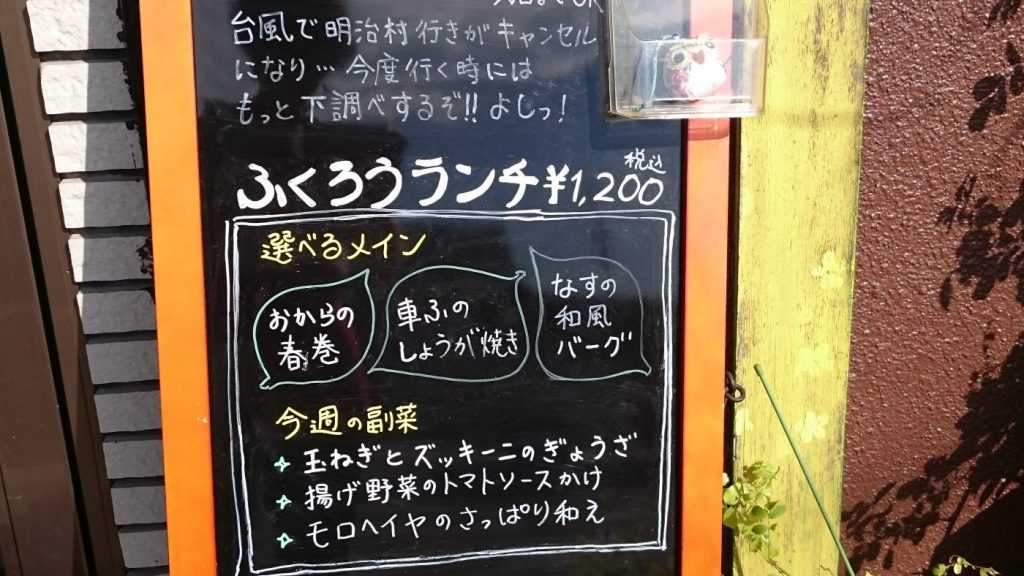 台風で明治村行きがキャンセル
になり…今度行く時には
もっと下調べするぞ!!よしっ!
ふくろうランチ¥1,200
税込
選べるメイン
おからの
春巻
車ふの
しょうが焼き
なすの
和風
バーグ
今週の副菜
玉ねぎとズッキーニのぎょうざ
揚げ野菜のトマトソースかけ
モロヘイヤのさっぱり和え